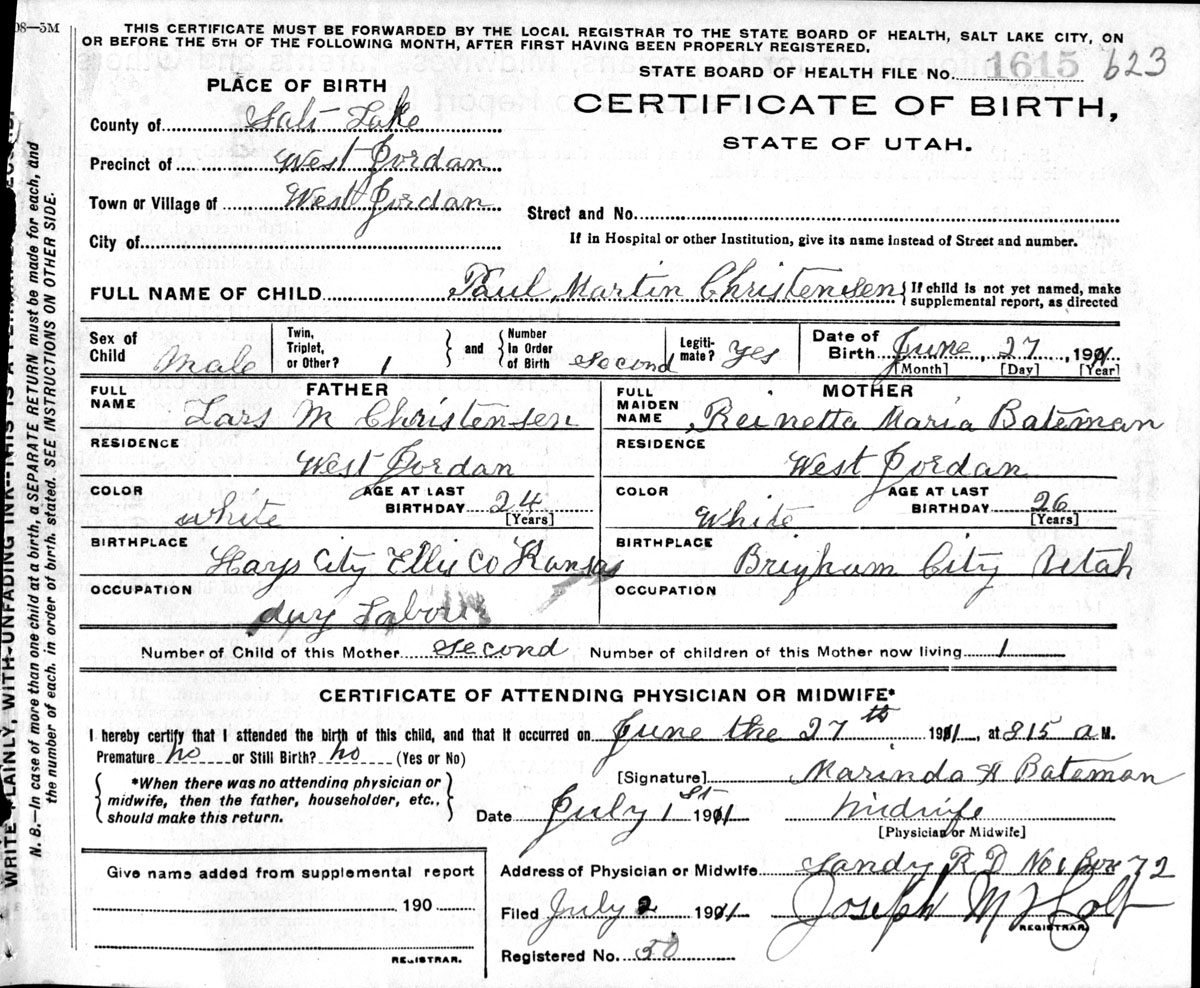 08—5M
THIS CERTIFICATE MUST BE FORWARDED BY THE LOCAL REGISTRAR TO THE STATE BOARD OF HEALTH, SALT LAKE CITY, ON
OR BEFORE THE 5TH OF THE FOLLOWING MONTH, AFTER FIRST HAVING BEEN PROPERLY REGISTERED.
STATE BOARD OF HEALTH FILE No. 1615 623
PLACE OF BIRTH
CERTIFICATE OF BIRTH,
STATE OF UTAH.
County of Salt Lake
Precinct of West Jordan
Town or Village of West Jordan
Street and No.
City of
If in Hospital or other Institution, give its name instead of Street and number.
FULL NAME OF CHILD Paul Martin Christensen { If child is not yet named, make
supplemental report, as directed
Sex of Child Male
Twin, Triplet, or Other? 1 } and { Number In Order of Birth second
Legiti-mate? Yes
Date of Birth June, 27, 1911
[Month] [Day] [Year]
FATHER
FULL NAME Lars M Christensen
MOTHER
FULL MAIDEN NAME Reinetta Maria Bateman
RESIDENCE West Jordan
RESIDENCE West Jordan
COLOR white AGE AT LAST BIRTHDAY 24 [Years]
COLOR White AGE AT LAST BIRTHDAY 26 [Years]
BIRTHPLACE Hays City Ellis Co Kansas
BIRTHPLACE Brigham City Utah
OCCUPATION day Labour
OCCUPATION
Number of Child of this Mother second Number of children of this Mother now living 1
CERTIFICATE OF ATTENDING PHYSICIAN OR MIDWIFE*
I hereby certify that I attended the birth of this child, and that it occurred on June the 27th 1911, at 815 a M.
Premature no or Still Birth? no (Yes or No)
{ *When there was no attending physician or
midwife, then the father, householder, etc.,
should make this return. }
[Signature] Marinda H Bateman
Date July 1st 1911 Midwife
[Physician or Midwife]
Give name added from supplemental report
190
REGISTRAR.
Address of Physician or Midwife Sandy R D No 1 Box 72
Filed July 2 1911 Joseph M Holt
REGISTRAR
Registered No. 50
WRITE PLAINLY, WITH UNFADING INK—THIS IS A
N. B.—In case of more than one child at a birth, a SEPARATE RETURN must be made for each, and
the number of each, in order of birth, stated. SEE INSTRUCTIONS ON OTHER SIDE.